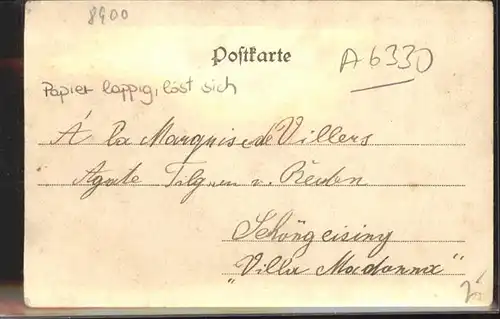 8900
Postkarte
A6330
Papier lappig, löst sich
Á la Marquise de Villers
Agate v. Reden
Schöngeising
"Villa Madonna"